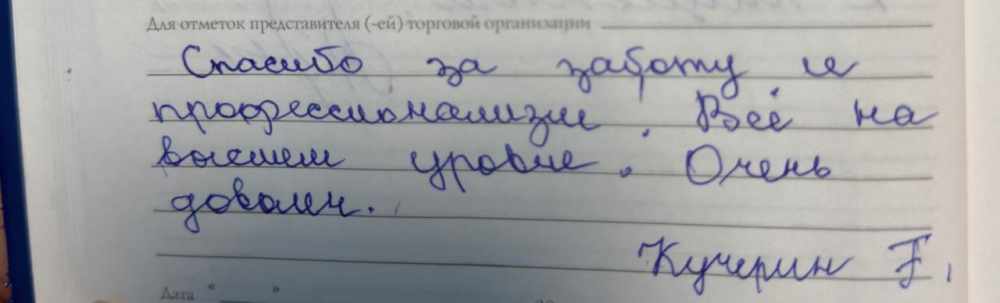 Для отметок представителя (-ей) торговой организации
Спасибо за заботу и
профессионализм. Всё на
высшем уровне. Очень
доволен.
Кучерин Г.
Дата "    "